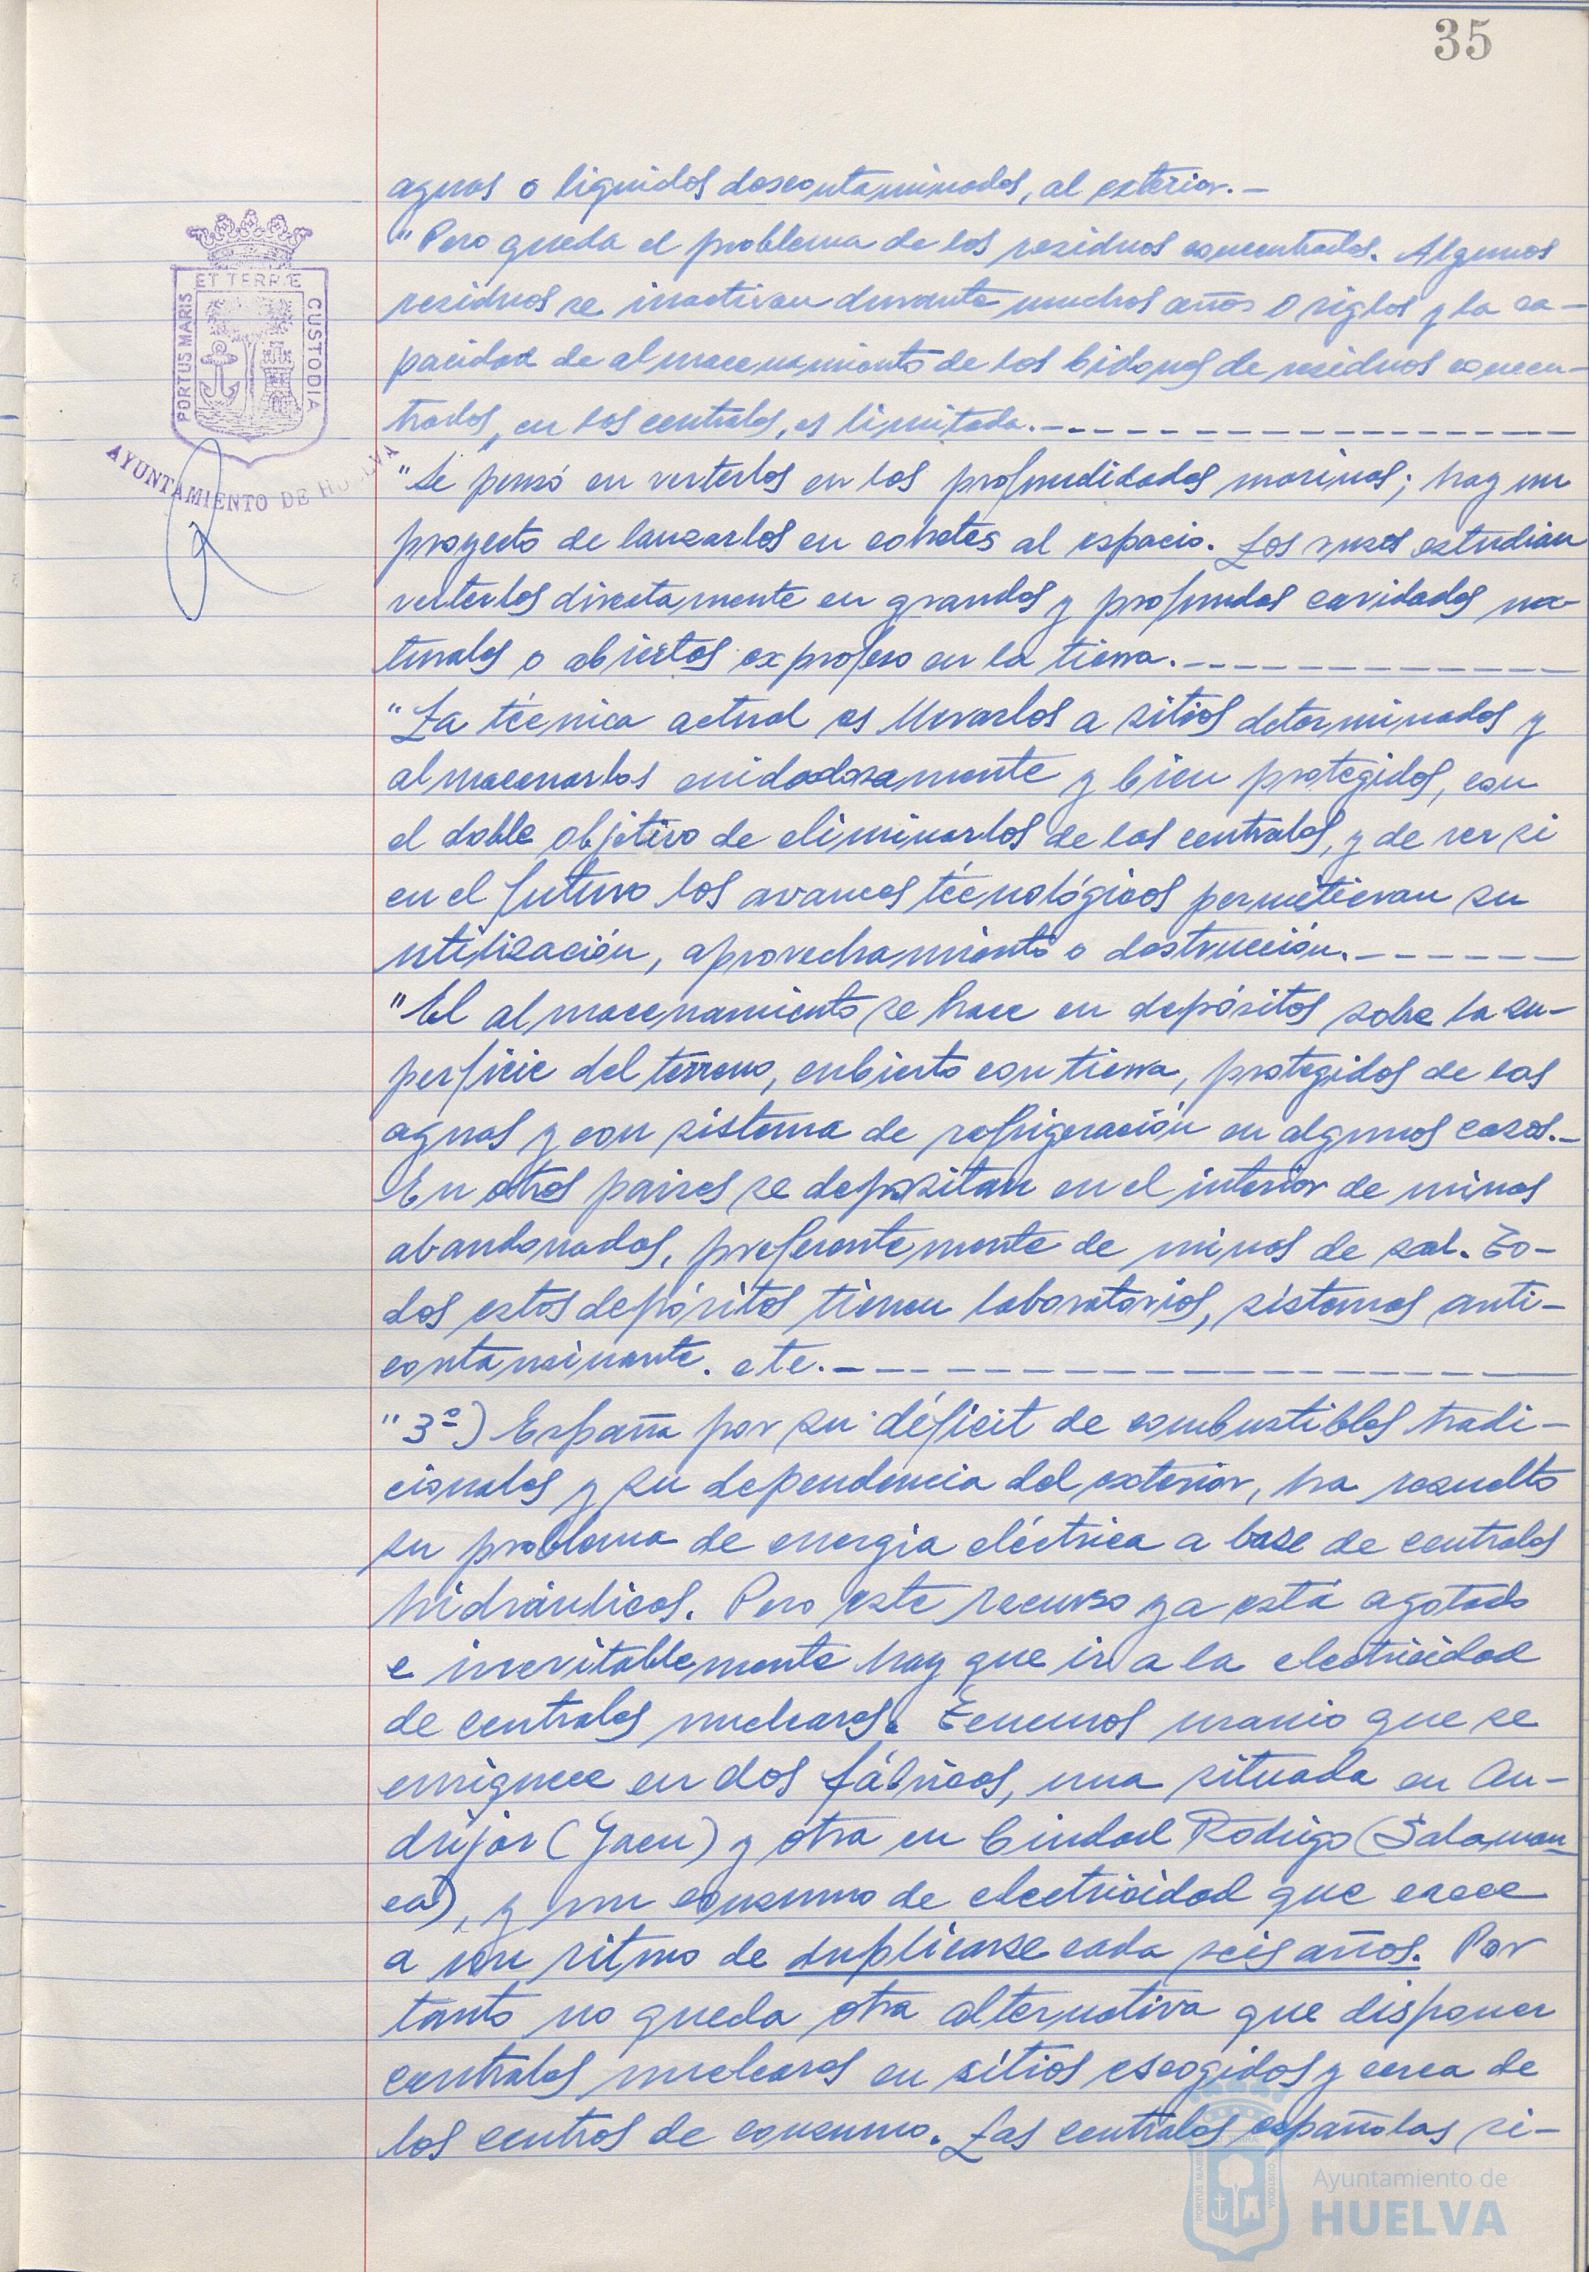 35
aguas o liquidos descontaminados, al exterior.—
"Pero queda el problema de los residuos concentrados. Algunos
residuos se inactivan durante muchos años o siglos y la ca-
pacidad de almacenamiento de los bidones de residuos concen-
trados, en las centrales, es limitada.—
"Se pensó en verterlos en las profundidades marinas; hay un
proyecto de lanzarlos en cohetes al espacio. Los rusos estudian
verterlos directamente en grandes y profundas cavidades na-
turales o abiertas exprofeso en la tierra.—
"La técnica actual es llevarlos a sitios determinados y
almacenarlos cuidadosamente y bien protegidos, con
el doble objetivo de eliminarlos de las centrales, y de ver si
en el futuro los avances técnológicos permitieran su
utilización, aprovechamiento o destrucción.—
"El almacenamiento se hace en depósitos sobre la su-
perficie del terreno, cubierto con tierra, protegidos de las
aguas y con sistema de refrigeración en algunos casos.—
En otros paises se depositan en el interior de minas
abandonadas, preferentemente de minas de sal. To-
dos estos depósitos tienen laboratorios, sistemas anti-
contaminante. etc.—
"3º) España por su déficit de combustibles tradi-
cionales y su dependencia del exterior, ha resuelto
su problema de energia eléctrica a base de centrales
hidráulicas. Pero este recurso ya está agotado
e inevitablemente hay que ir a la electricidad
de centrales nucleares. Tenemos uranio que se
enriquece en dos fábricas, una situada en An-
drijar (Jaen) y otra en Ciudad Rodrigo (Salaman-
ca), y un consumo de electricidad que crece
a un ritmo de duplicarse cada seis años. Por
tanto no queda otra alternativa que disponer
centrales nucleares en sitios escogidos y cerca de
los centros de consumo. Las centrales españolas si-
PORTUS MARIS ET TERRÆ CUSTODIA
AYUNTAMIENTO DE HUELVA
Ayuntamiento de
HUELVA